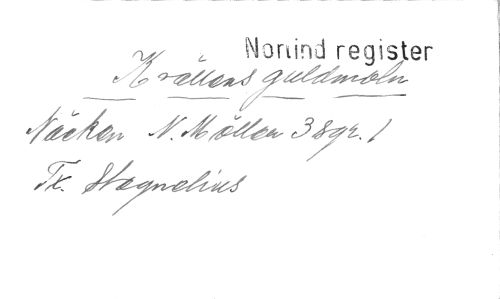 Nortind register
Kvällens guldmoln
Näcken N. Möller 3 sgr. 1
Tx. Stagnelius